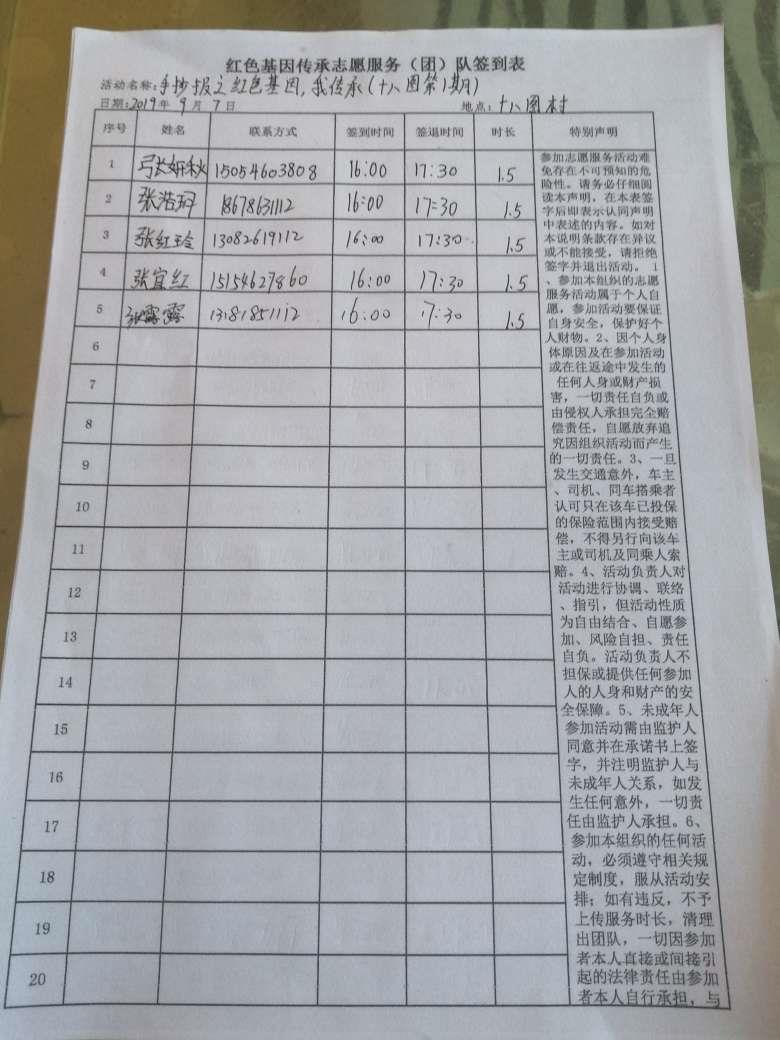 红色基因传承志愿服务（团）队签到表
活动名称:手抄报之红色基因,我传承(十八图第1期)
日期:2019年 9月 7日 地点:十八图村
序号 姓名 联系方式 签到时间 签退时间 时长 特别声明
1 张妍秋 15054603808 16:00 17:30 1.5
2 张浩 18678631112 16:00 17:30 1.5
3 张红玲 13082619112 16:00 17:30 1.5
4 张宜红 15154627860 16:00 17:30 1.5
5 张露露 13181851112 16:00 17:30 1.5
6
7
8
9
10
11
12
13
14
15
16
17
18
19
20
参加志愿服务活动难
免存在不可预知的危
险性。请务必仔细阅
读本声明，在本表签
字后即表示认同声明
中表述的内容。如对
本说明条款存在异议
或不能接受，请拒绝
签字并退出活动。 1
、参加本组织的志愿
服务活动属于个人自
愿，参加活动要保证
自身安全，保护好个
人财物。2、因个人身
体原因及在参加活动
或在往返途中发生的
任何人身或财产损
害，一切责任自负或
由侵权人承担完全赔
偿责任，自愿放弃追
究因组织活动而产生
的一切责任。3、一旦
发生交通意外，车主
、司机、同车搭乘者
认可只在该车已投保
的保险范围内接受赔
偿，不得另行向该车
主或司机及同乘人索
赔。4、活动负责人对
活动进行协调、联络
、指引，但活动性质
为自由结合、自愿参
加、风险自担、责任
自负。活动负责人不
担保或提供任何参加
人的人身和财产的安
全保障。5、未成年人
参加活动需由监护人
同意并在承诺书上签
字，并注明监护人与
未成年人关系，如发
生任何意外，一切责
任由监护人承担。6、
参加本组织的任何活
动，必须遵守相关规
定制度，服从活动安
排；如有违反，不予
上传服务时长，清理
出团队，一切因参加
者本人直接或间接引
起的法律责任由参加
者本人自行承担，与